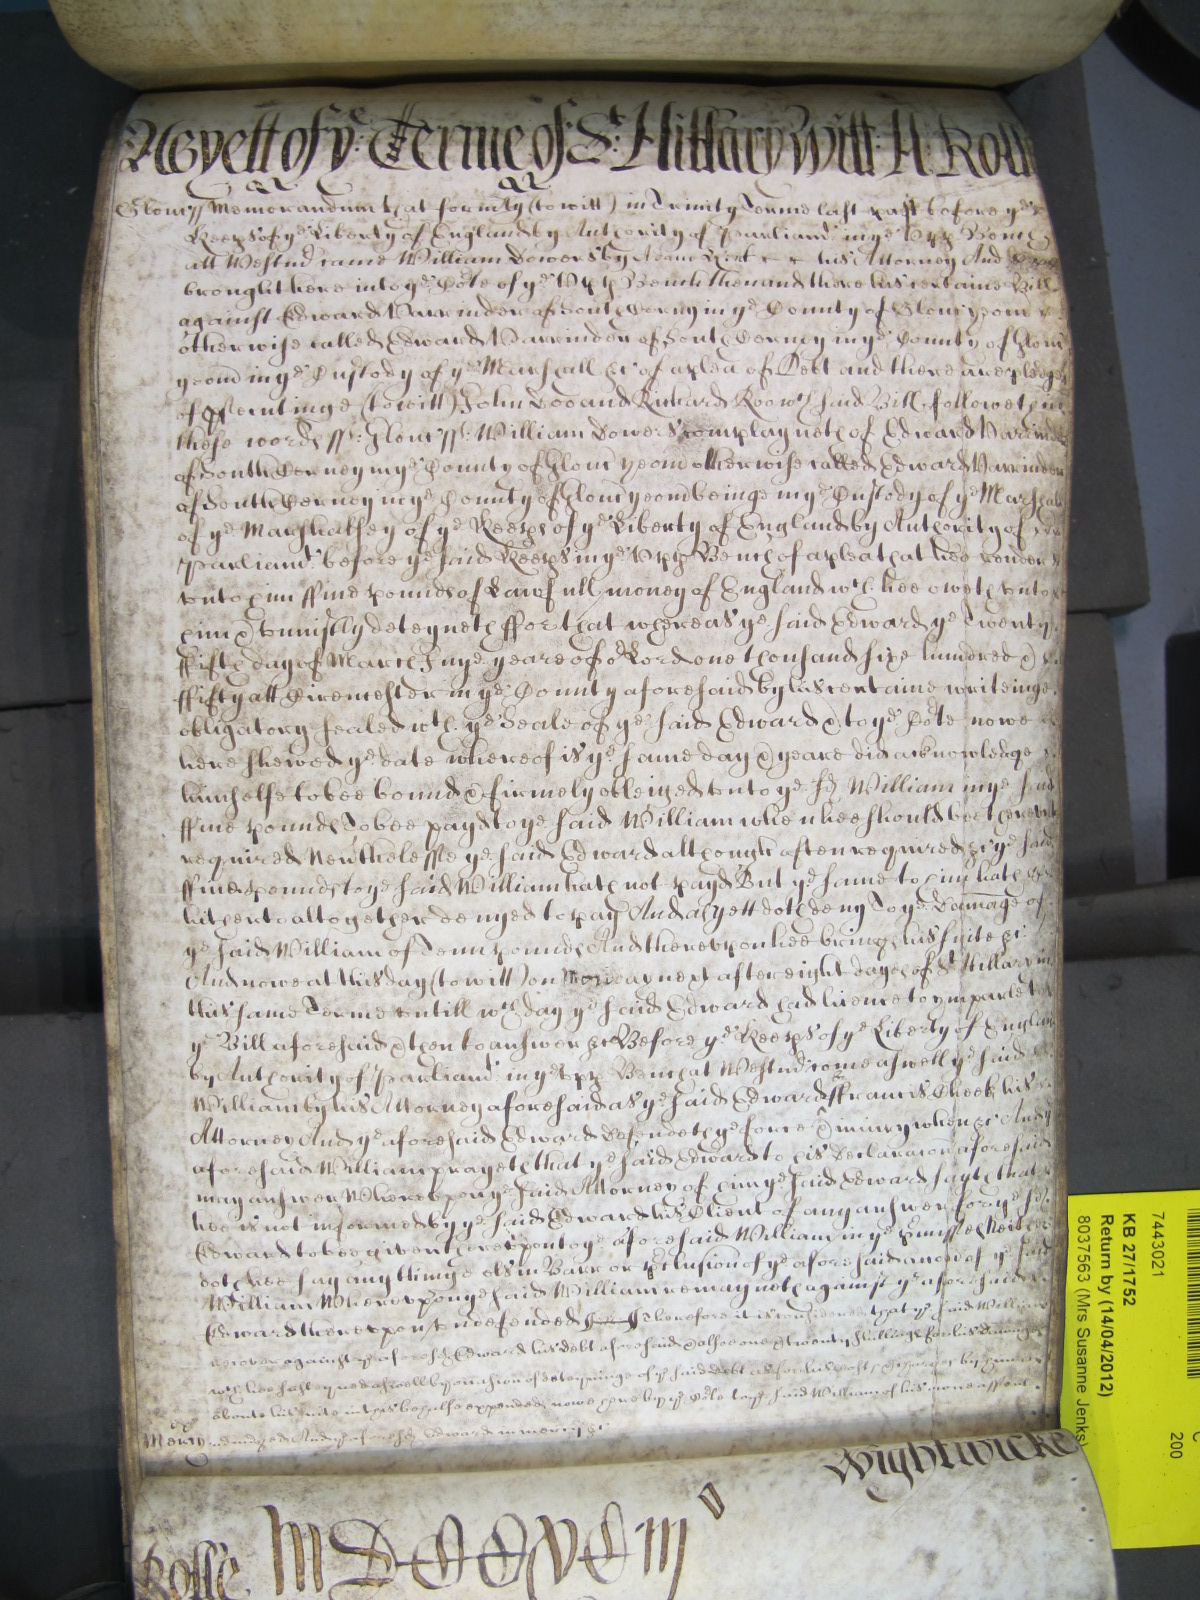 As yett of ye Terme of St Hillary Witt: A Roll
Gloucr ss Memorandum that formerly (to witt) in Trinity Terme last past before ye
Keeprs of ye Liberty of England by Authority of Parliamt in ye Uppr Bench
att Westmr came William Sowers by his Attorney And
brought here into ye Corte of ye Uppr Bench then and there his certaine Bill
against Edward Parrinder of South Cerney in ye County of Gloucr yeom
otherwise called Edward Parrinder of South Cerney in ye County of Gloucr
yeom in ye Custody of ye Marshall &c of a plea of Debt and there are pledges
of prsecutinge (to witt) John Doo and Richard Roo wch said Bill followeth in
these words ss: Gloucr ss: William Sowers complayneth of Edward Parrinder
of South Cerney in ye County of Gloucr yeom otherwise called Edward Parrinder
of South Cerney in ye County of Gloucr yeom beinge in ye Custody of ye Marshall
of ye Marshalsey of ye Keeprs of ye Liberty of England by Authority of
Parliamt before ye said Keeprs in ye Uppr Bench of a plea that hee render
unto him ffive pounds of Lawfull money of England wch hee oweth unto
him & uniustly deteyneth ffor that whereas ye said Edward ye Twenty
ffifth day of March In ye yeare of or Lord one thousand sixe hundred &
ffifty att Cirencester in ye County aforesaid by his certaine writeinge
obligatory sealed wth ye Seale of ye said Edward & to ye Corte nowe
here shewed ye date whereof is ye same day & yeare did acknowledge
himselfe to bee bound & firmely obleiged unto ye sd William in ye said
ffive pounds To bee payd to ye said William when hee should bee thereunto
required Nevrthelesse ye said Edward although often required &c ye said
ffive pounds to ye said William hath not payd But ye same to him hath
hitherto altogether denyed to pay And as yett doth deny To ye Damage of
ye said William of Tenn pounds And thereupon hee brings his suite &c
And nowe at this day (to witt) on next after eight dayes of St Hillary in
this same Terme untill wch day ye said Edward had licence to imparle to
ye Bill aforesaid & then to answer &c Before ye Keeprs of ye Liberty of England
by Authority of Parliamt in ye Uppr Bench at Westmr come aswell ye said
William by his Attorney aforesaid as ye said Edward by ffrancis Cheek his
Attorney And ye aforesaid Edward defendeth ye force & iniury when &c And ye
aforesaid William prayeth that ye said Edward to his Declaracon aforesaid
may answer Whereupon ye said Attorney of him ye said Edward sayth that
hee is not informed by ye said Edward his Client of any answer for ye sd
Edward to bee given thereupon to ye aforesaid William in ye prmisses Neither
doth hee say any thinge els in Barr or prclusion of ye aforesaid accon of ye said
William Whereupon ye said William remayneth against ye aforesaid
Edward thereupon undefended Therefore it is considered that ye said William
recover against ye aforesd Edward his debt aforesaid & alsoe one & twenty shillings for his damages
wch hee hath susteyned aswell by occasion of deteyninge of ye said debt as for his costs & charges by him
about his suite in this behalfe expended nowe here by ye Corte to ye said William of his owne assent
Mercy adiudged And ye aforesd Edward in mercy &c
Wightwicke
Rosse MDCCVCIII
7443021
KB 27/1752
Return by (14/04/2012)
8037563 (Mrs Susanne Jenks)
200